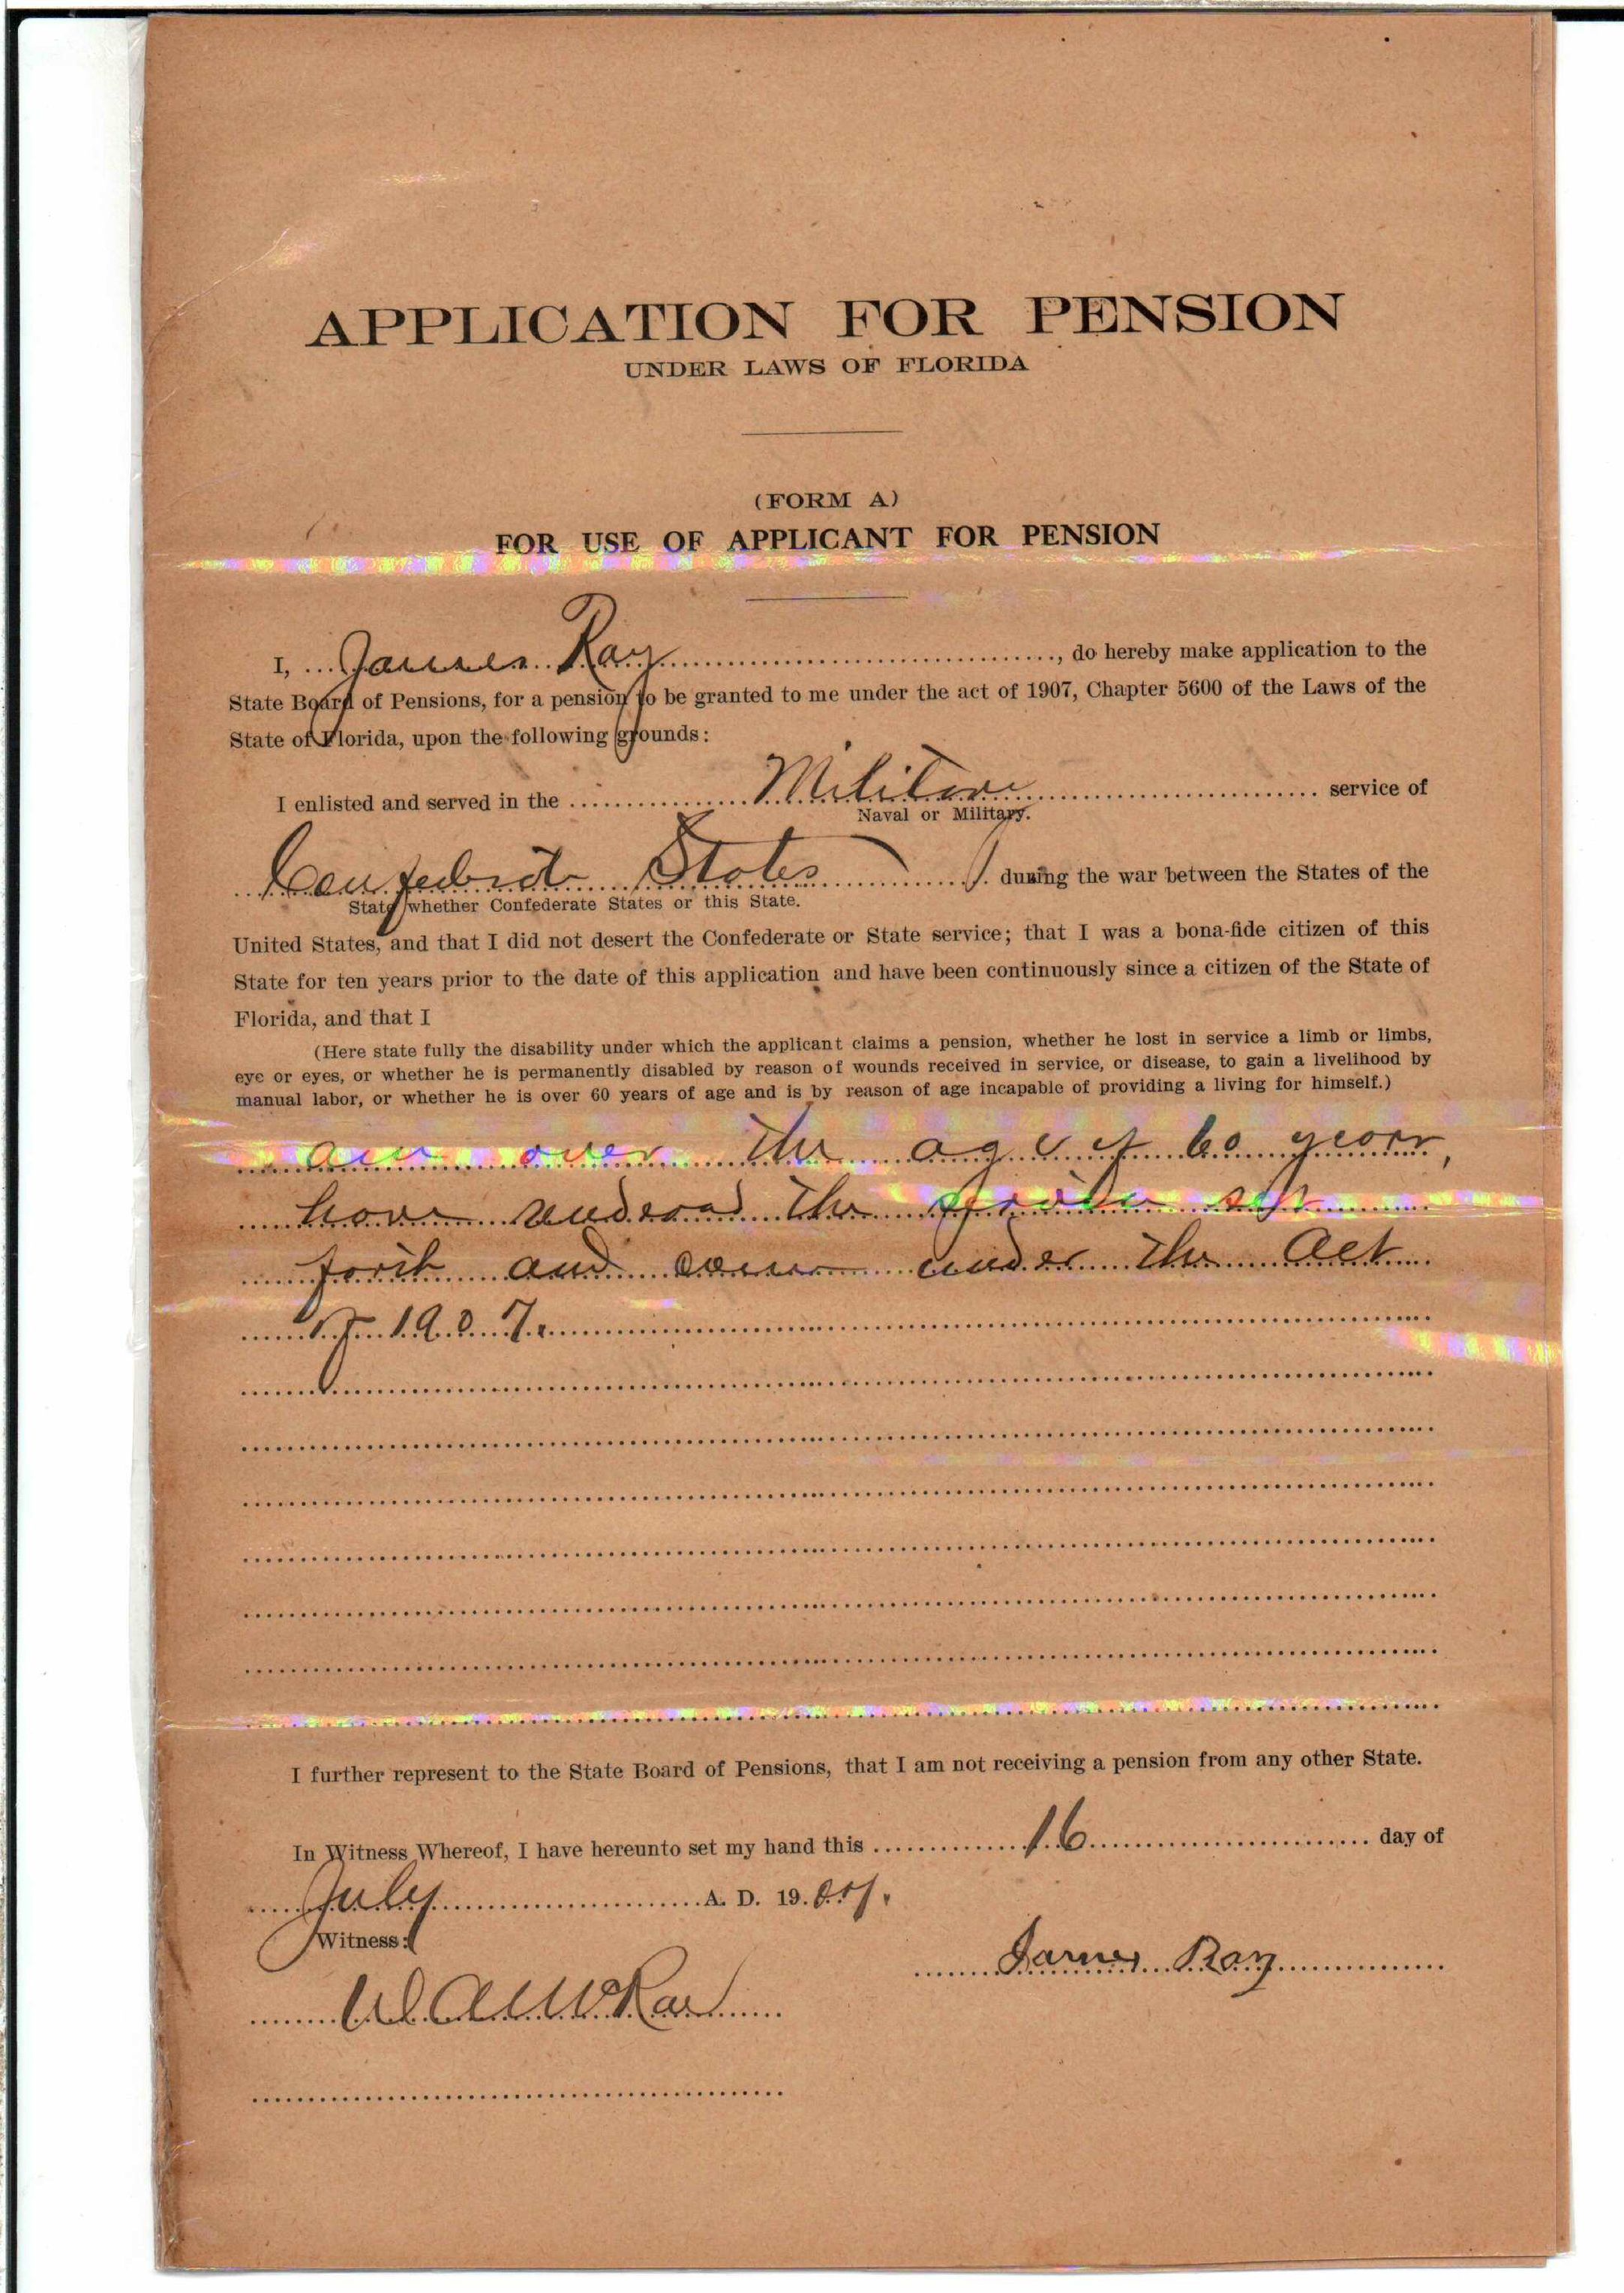 APPLICATION FOR PENSION
UNDER LAWS OF FLORIDA
(FORM A)
FOR USE OF APPLICANT FOR PENSION
I, James Ray, do hereby make application to the
State Board of Pensions, for a pension to be granted to me under the act of 1907, Chapter 5600 of the Laws of the
State of Florida, upon the following grounds:
I enlisted and served in the Military service of
Naval or Military.
Confedrate States during the war between the States of the
State whether Confederate States or this State.
United States, and that I did not desert the Confederate or State service; that I was a bona-fide citizen of this
State for ten years prior to the date of this application and have been continuously since a citizen of the State of
Florida, and that I
(Here state fully the disability under which the applicant claims a pension, whether he lost in service a limb or limbs,
eye or eyes, or whether he is permanently disabled by reason of wounds received in service, or disease, to gain a livelihood by
manual labor, or whether he is over 60 years of age and is by reason of age incapable of providing a living for himself.)
am over the age of 60 years,
have rendered the service set
forth and come under the Act
of 1907.
I further represent to the State Board of Pensions, that I am not receiving a pension from any other State.
In Witness Whereof, I have hereunto set my hand this 16 day of
July A. D. 19
Witness:
James Ray